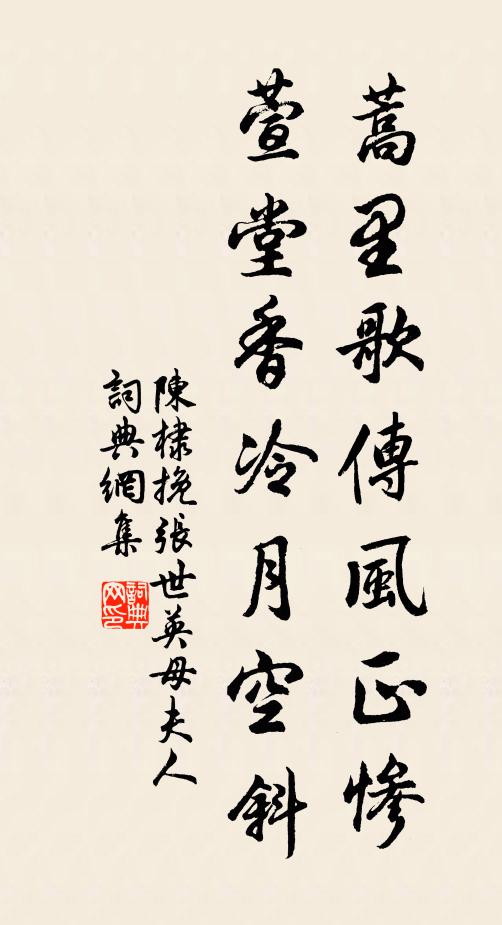 蒿里歌傳風正慘
萱堂香冷月空斜
陳棣挽張世英母夫人
詞典網集
詞典网印